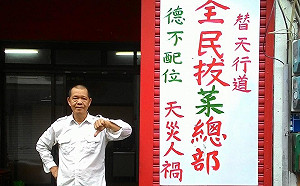 替天行道
全民拔菜總部
德不配位
天災人禍